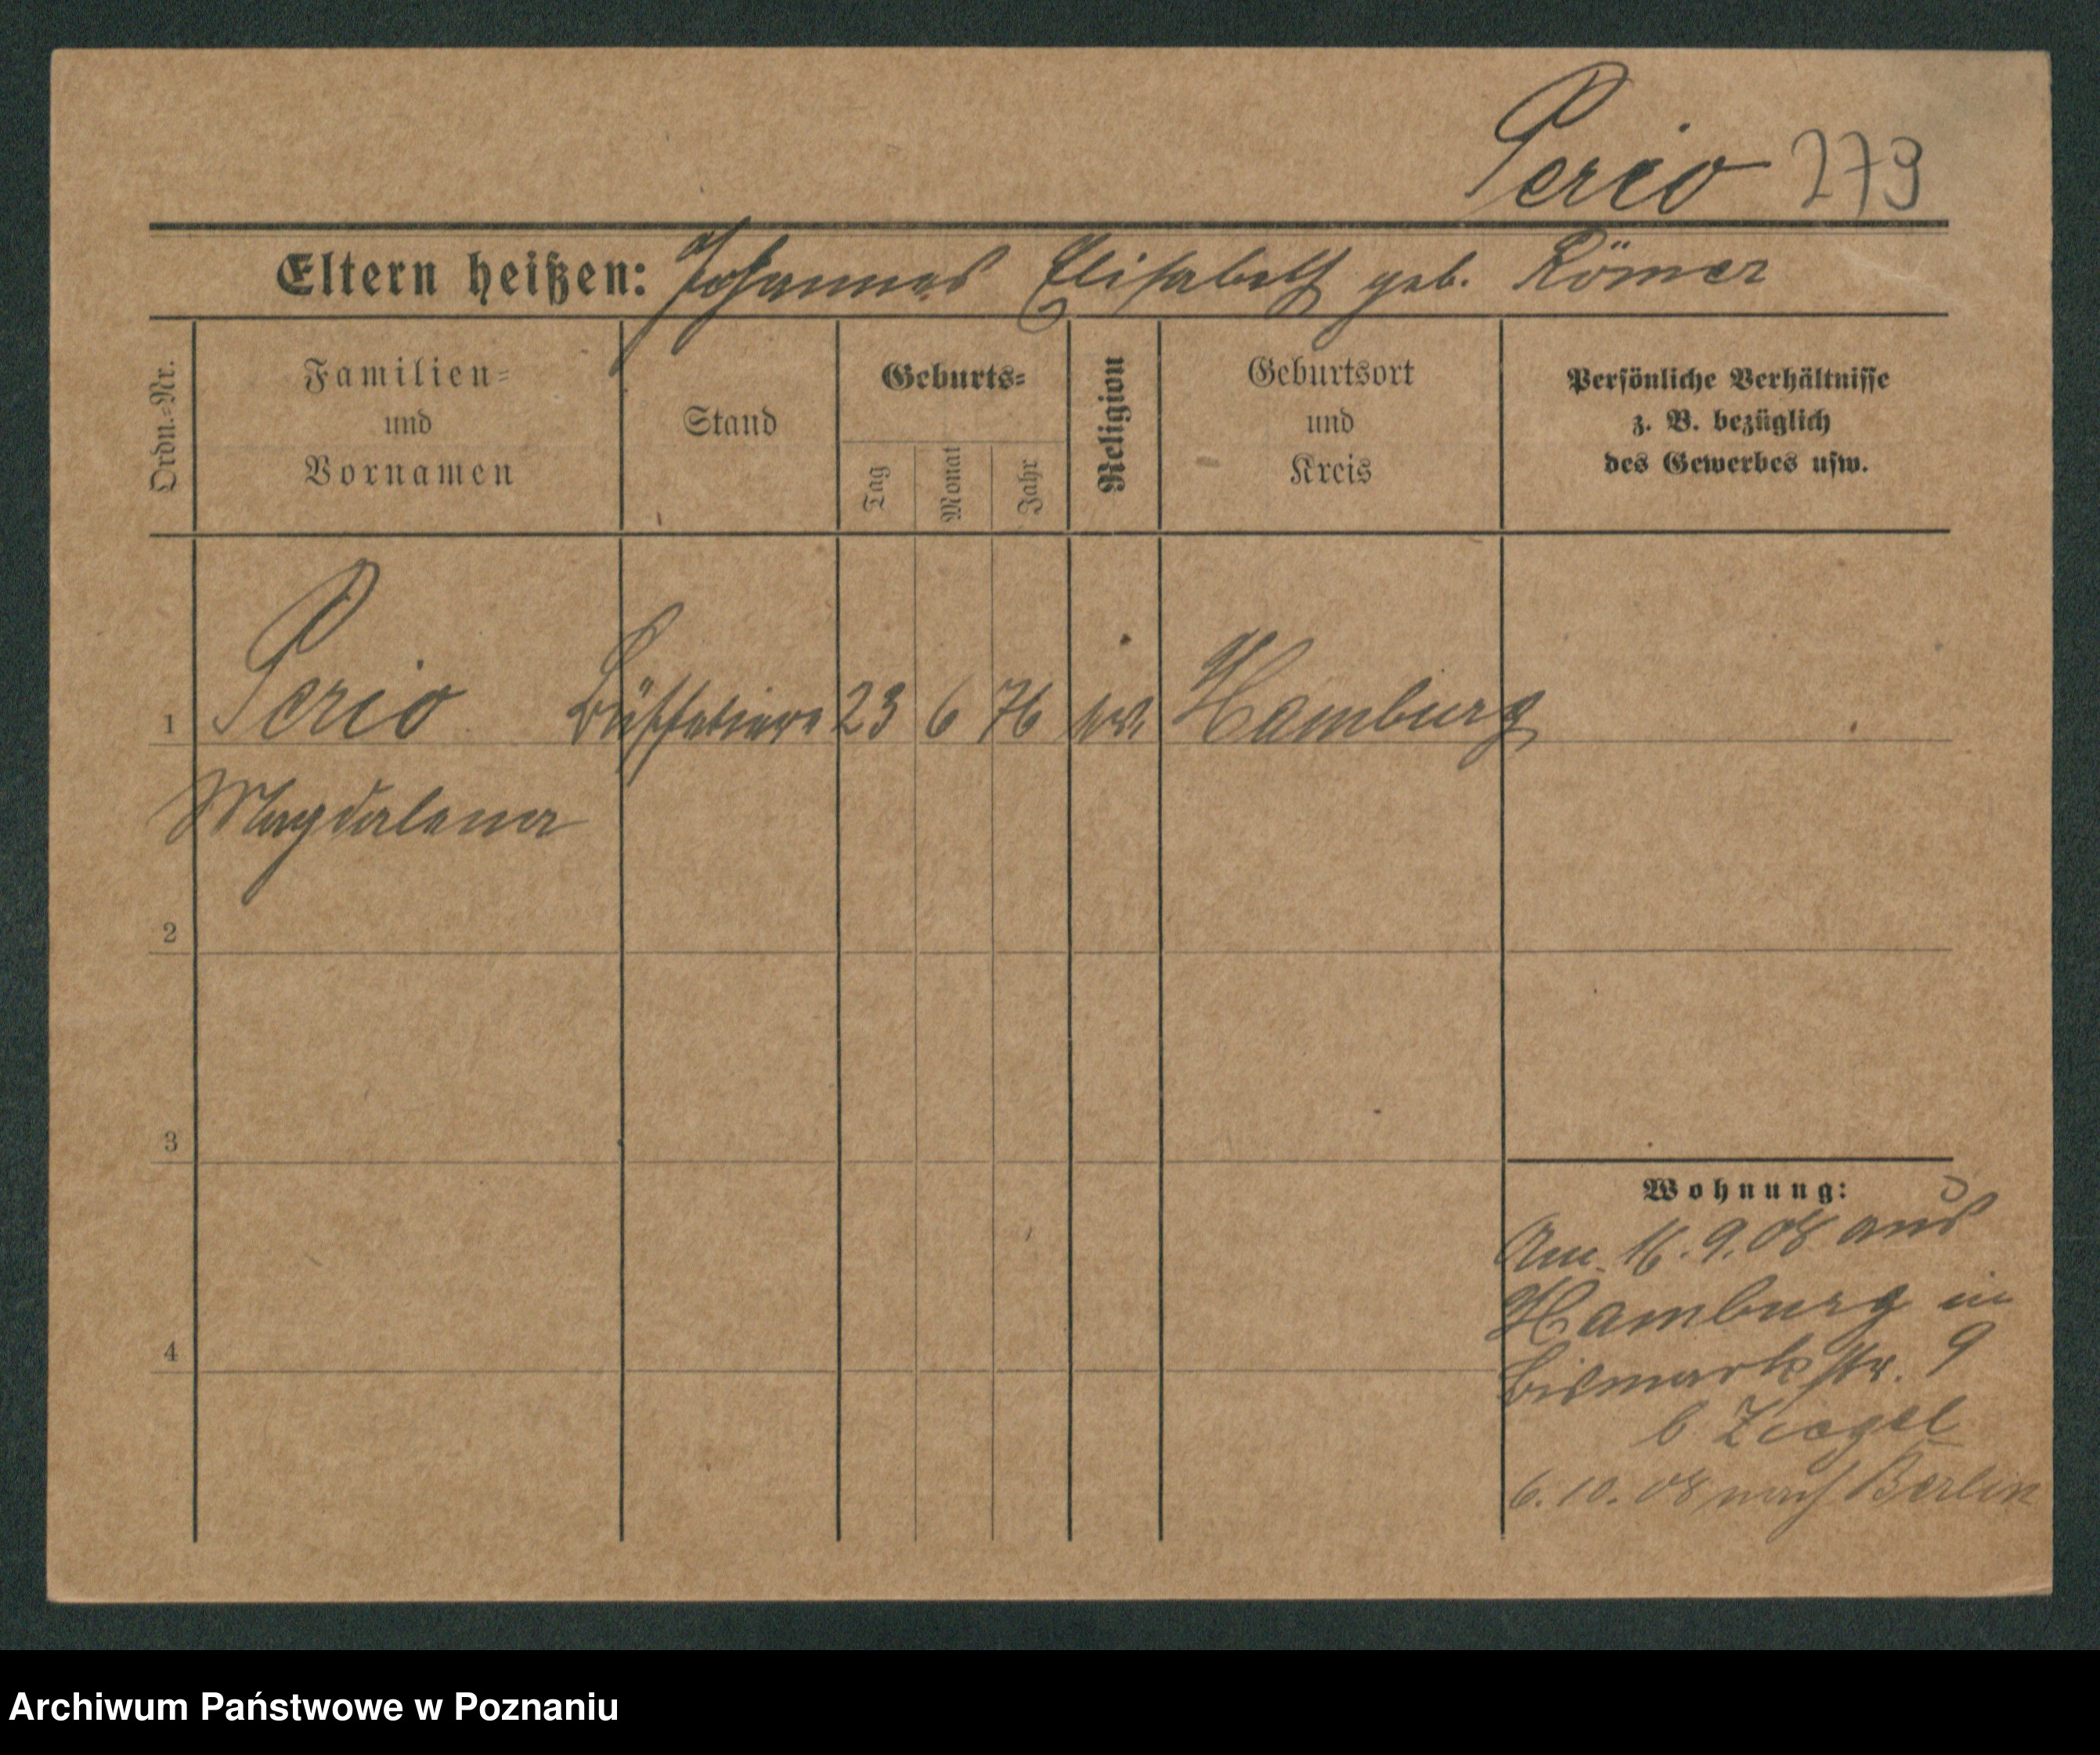 Perio 279
Eltern heißen: Johannes Elisabeth geb. Römer
Ordn.=Nr.
Familien=
und
Vornamen
Stand
Geburts=
Tag
Monat
Jahr
Religion
Geburtsort
und
Kreis
Persönliche Verhältnisse
z. B. bezüglich
des Gewerbes usw.
1 Perio 23 6 76 Hamburg
Magdalena
2
3
4
Wohnung:
Am 16.9.08 aus
Hamburg in
Bismarkstr. 9
b Ziegel
6.10.08 nach Berlin
Archiwum Państwowe w Poznaniu